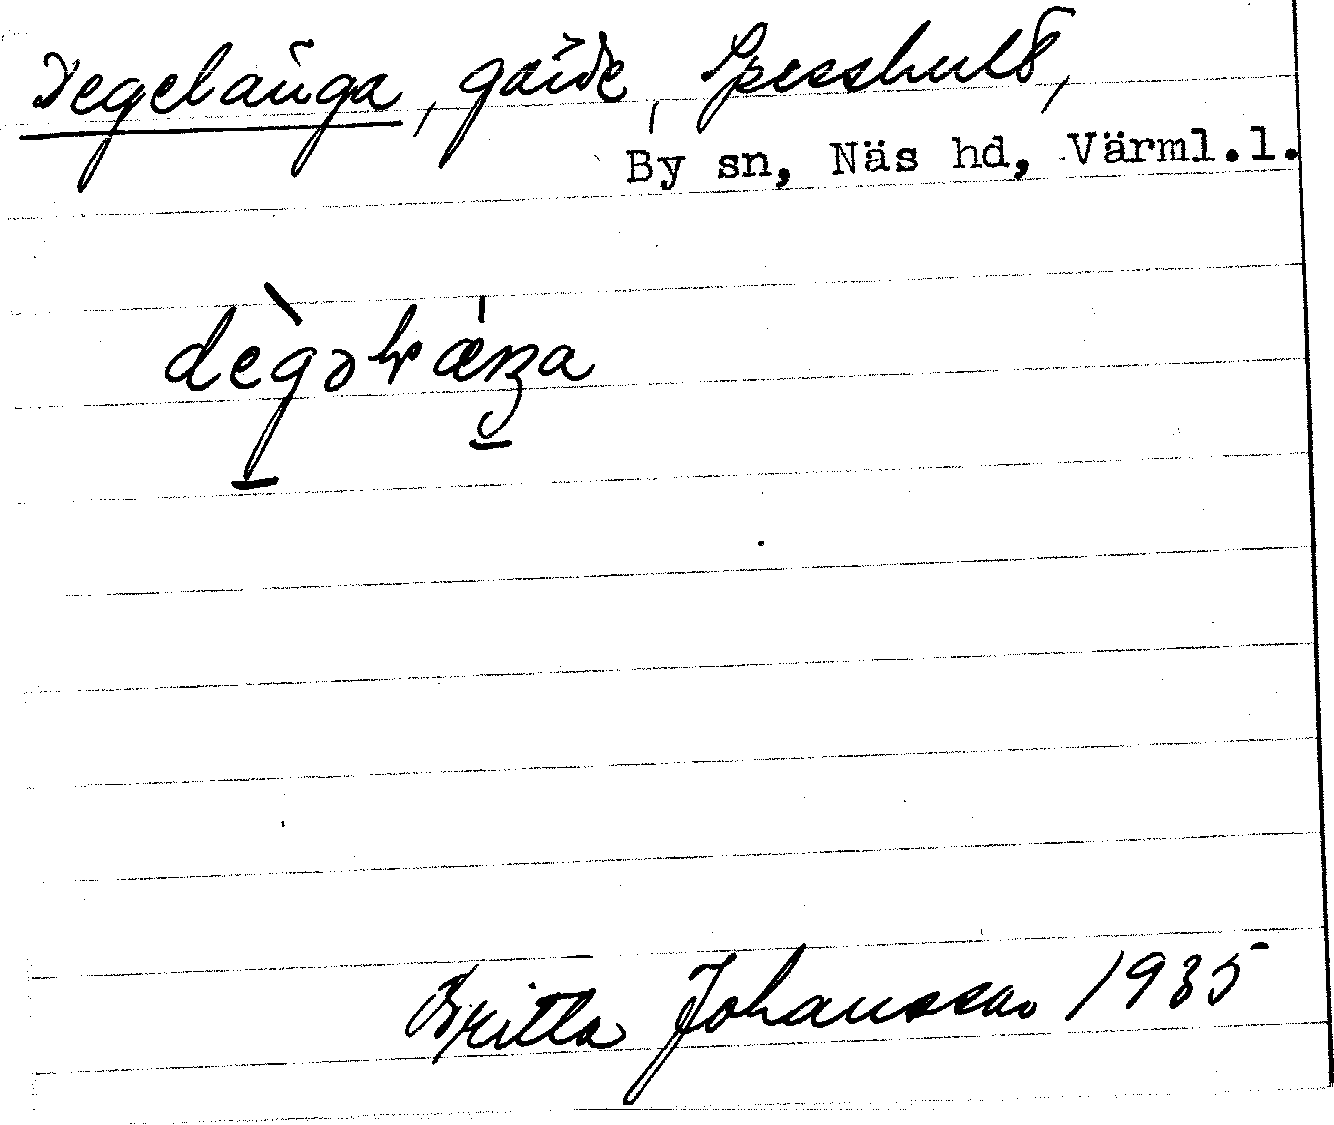 Degelänga, gärde, Spesshult,
By sn, Näs hd, Värml.l.
Britta Johansson 1935